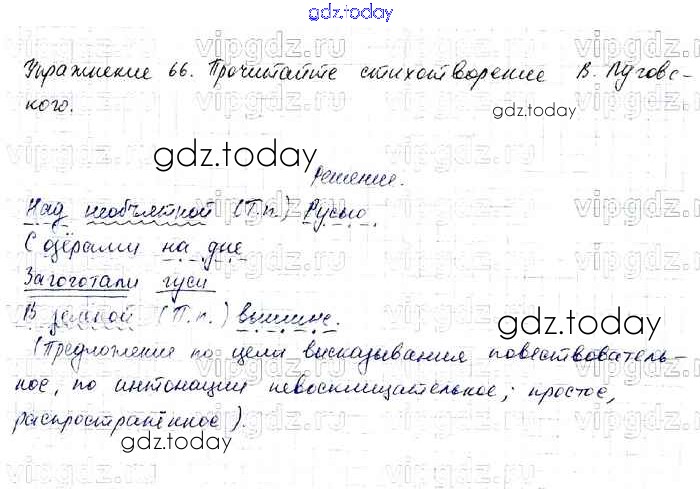 gdz.today
Упражнение 66. Прочитайте стихотворение В. Луговс-
кого.
gdz.today
gdz.today
Решение.
Над необъятной (Т.п.) Русью
С озёрами на дне
Загоготали гуси
В земной (П.п.) вышине.
gdz.today
(Предложение по цели высказывания повествователь-
ное, по интонации невосклицательное; простое,
распространённое).
gdz.today
vipgdz.ru